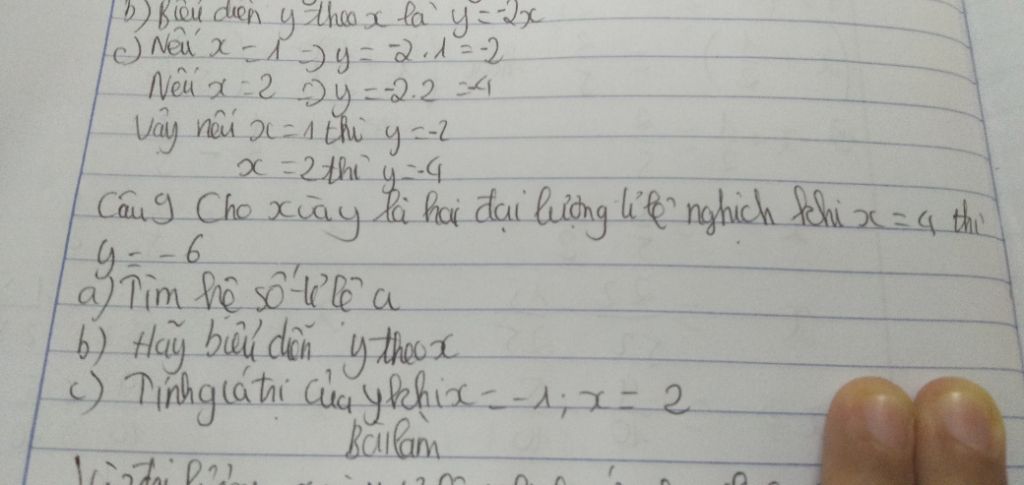 b) Biểu diễn y theo x là y = -2x
c) Nếu x = 1 => y = -2.1 = -2
Nếu x = 2 => y = -2.2 = -4
Vậy nếu x = 1 thì y = -2
x = 2 thì y = -4
Câu 9 Cho x và y là hai đại lượng tỉ lệ nghịch khi x = 4 thì
y = - 6
a) Tìm hệ số tỉ lệ a
b) Hãy biểu diễn y theo x
c) Tính giá trị của y khi x = -1 ; x = 2
Bài làm